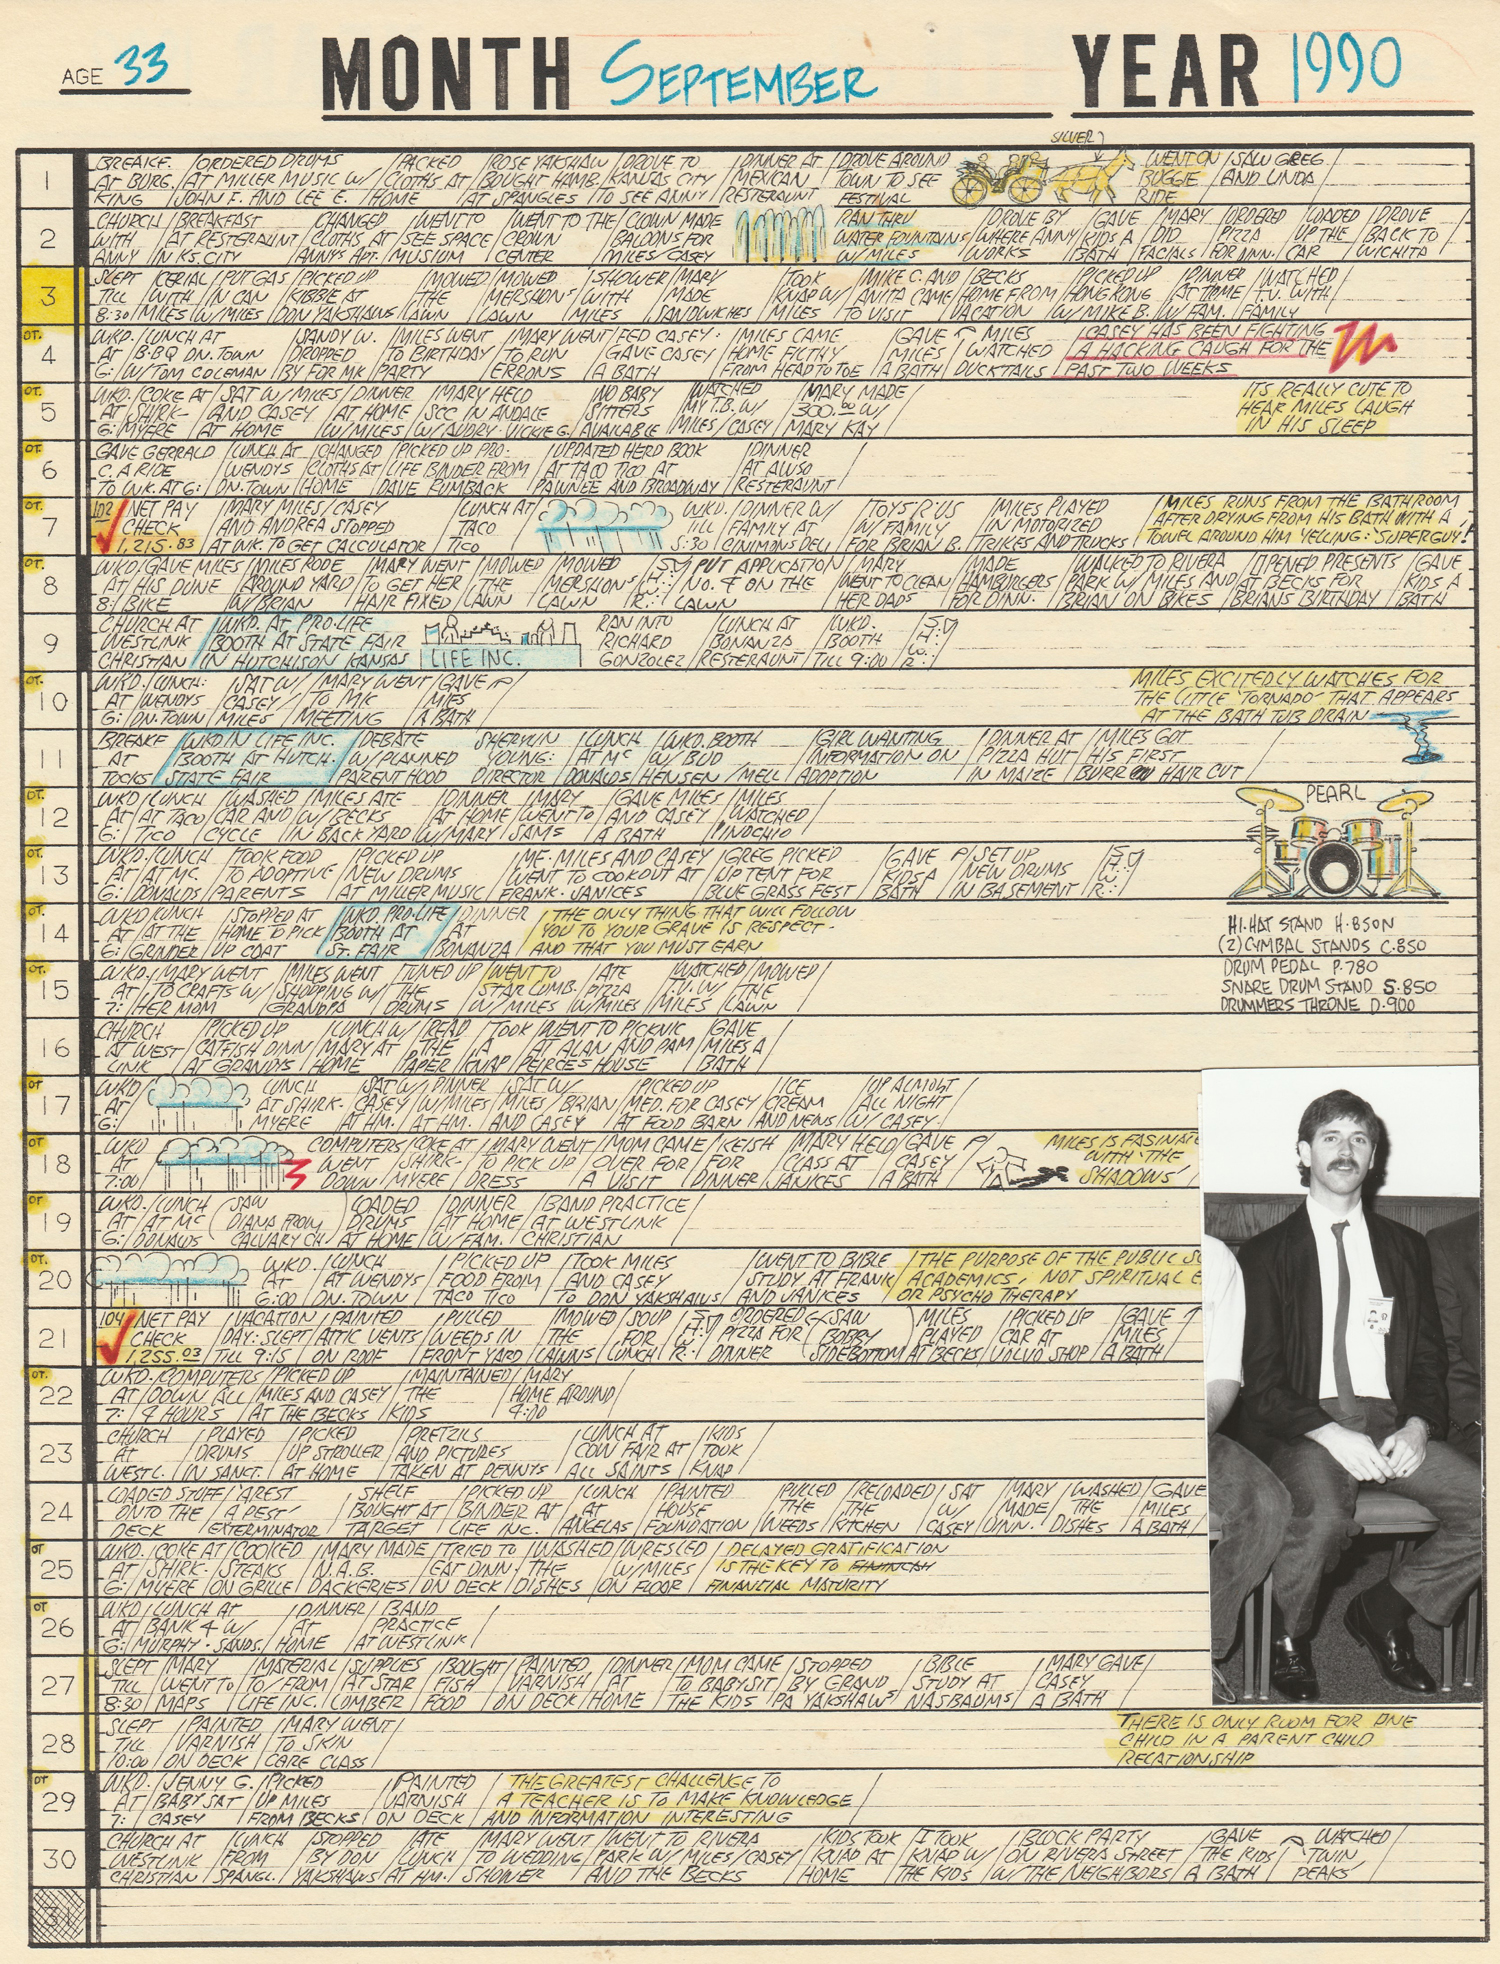 AGE 33 MONTH SEPTEMBER YEAR 1990
SILVER
1
BREAKF. / ORDERED DRUMS / PACKED / ROSE YAKSHAW / DROVE TO / DINNER AT / DROVE AROUND WENT ON / SAW GREG
AT BURG. / AT MILLER MUSIC W/ / CLOTHS AT / BOUGHT HAMB. / KANSAS CITY / MEXICAN / TOWN TO SEE BUGGIE / AND LINDA
KING / JOHN F. AND LEE E. / HOME / AT SPANGLES / TO SEE ANNY / RESTERAUNT / FESTIVAL RIDE
2
CHURCH / BREAKFAST / CHANGED / WENT TO / WENT TO THE / CLOWN MADE RAN THRU / DROVE BY / GAVE / MARY / ORDERED / LOADED / DROVE
WITH / AT RESTERAUNT / CLOTHS AT / SEE SPACE / CROWN / BALOONS FOR WATER FOUNTAINS / WHERE ANNY / KIDS A / DID / PIZZA / UP THE / BACK TO
ANNY / IN KS. CITY / ANNYS APT. / MUSIUM / CENTER / MILES/CASEY W/ MILES / WORKS / BATH / FACIALS / FOR DINN. / CAR / WICHITA
3
SLEPT / CERIAL / PUT GAS / PICKED UP / MOWED / MOWED / SHOWER / MARY / TOOK / MIKE C. AND / BECKS / PICKED UP / DINNER / WATCHED
TILL / WITH / IN CAN / KIBBIE AT / THE / MERSHONS / WITH / MADE / KNAP W/ / ANITA CAME / HOME FROM / HONGKONG / AT HOME / T.V. WITH
8:30 / MILES / W/ MILES / DON YAKSHAWS / LAWN / LAWN / MILES / SANDWICHES / MILES / TO VISIT / VACATION / W/ MIKE B. / W/ FAM. / FAMILY
OT. 4
WKD. / LUNCH AT / SANDY W. / MILES WENT / MARY WENT / FED CASEY. / MILES CAME / GAVE / MILES / CASEY HAS BEEN FIGHTING
AT / B-BQ DN. TOWN / DROPPED / TO BIRTHDAY / TO RUN / GAVE CASEY / HOME FILTHY / MILES / WATCHED / A HACKING CAUGH FOR THE
6: / W/ TOM COLEMAN / BY FOR MK / PARTY / ERRONS / A BATH / FROM HEAD TO TOE / A BATH / DUCKTAILS / PAST TWO WEEKS
OT. 5
WKD. / COKE AT / SAT W/ MILES / DINNER / MARY HELD / NO BABY / WATCHED / MARY MADE ITS REALLY CUTE TO
AT / SHIRK- / AND CASEY / AT HOME / SCC IN ANDALE / SITTERS / MY T.B. W/ / 300.00 W/ HEAR MILES LAUGH
6: / MYERE / AT HOME / W/ MILES / W/ AUDRY-VICKIE G. / AVAILABLE / MILES/CASEY / MARY KAY IN HIS SLEEP
OT. 6
GAVE GERRALD / LUNCH AT / CHANGED / PICKED UP PRO- / UPDATED HERD BOOK / DINNER
C. A RIDE / WENDYS / CLOTHS AT / LIFE BINDER FROM / AT TACO TICO AT / AT ALWSO
TO WK. AT 6: / DN. TOWN / HOME / DAVE RUMBACK / PAWNEE AND BROADWAY / RESTERAUNT
OT. 7
102 NET PAY / MARY MILES/CASEY / LUNCH AT WKD. / DINNER W/ / TOYS'R'US / MILES PLAYED / MILES RUNS FROM THE BATHROOM
CHECK / AND ANDREA STOPPED / TACO TILL / FAMILY AT / W/ FAMILY / IN MOTORIZED / AFTER DRYING FROM HIS BATH WITH A
1,215.83 / AT WK. TO GET CALCULATOR / TICO 5:30 / CINIMONS DELI / FOR BRIAN B. / TRIKES AND TRUCKS / TOWEL AROUND HIM YELLING: 'SUPERGUY!'
OT. 8
WKD / GAVE MILES / MILES RODE / MARY WENT / MOWED / MOWED / S H W R / PUT APPLICATION / MARY / MADE / WALKED TO RIVERA / OPENED PRESENTS / GAVE
AT / HIS DUNE / AROUND YARD / TO GET HER / THE / MERSHONS / NO. 4 ON THE / WENT TO CLEAN / HAMBURGERS / PARK W/ MILES AND / AT BECKS FOR / KIDS A
8: / BIKE / W/ BRIAN / HAIR FIXED / LAWN / LAWN / LAWN / HER DADS / FOR DINN. / BRIAN ON BIKES / BRIANS BIRTHDAY / BATH
9
CHURCH AT / WKD. AT PRO-LIFE RAN INTO / LUNCH AT / WKD. / S
WESTLINK / BOOTH AT STATE FAIR RICHARD / BONANZA / BOOTH / H W
CHRISTIAN / IN HUTCHISON KANSAS LIFE INC. GONZOLEZ / RESTERAUNT / TILL 9:00 / R
OT. 10
WKD. / LUNCH: / SAT W/ / MARY WENT / GAVE MILES EXCITEDLY WATCHES FOR
AT / WENDYS / CASEY/ / TO MK / MILES THE LITTLE 'TORNADO' THAT APPEARS
6: / DN. TOWN / MILES / MEETING / A BATH AT THE BATH TUB DRAIN
11
BREAKF / WKD IN LIFE INC. / DEBATE / SHERYLIN / LUNCH / WKD. BOOTH / GIRL WANTING / DINNER AT / MILES GOT
AT / BOOTH AT HUTCH. / W/ PLANNED / YOUNG: / AT MC / W/ BUD / INFORMATION ON / PIZZA HUT / HIS FIRST
TOCKS / STATE FAIR / PARENTHOOD / DIRECTOR / DONALDS / HENSEN/MELL / ADOPTION / IN MAIZE / BURR HAIR CUT
OT. 12
WKD / LUNCH / WASHED / MILES ATE / DINNER / MARY / GAVE MILES / MILES PEARL
AT / AT TACO / CAR AND / W/ BECKS / AT HOME / WENT TO / AND CASEY / WATCHED
6: / TICO / CYCLE / IN BACK YARD / W/ MARY / SAMS / A BATH / PINOCHIO
OT. 13
WKD. / LUNCH / TOOK FOOD / PICKED UP / ME-MILES AND CASEY / GREG PICKED / GAVE / SET UP / S
AT / AT MC. / TO ADOPTIVE / NEW DRUMS / WENT TO COOKOUT AT / UP TENT FOR / KIDS A / NEW DRUMS / H W
6: / DONALDS / PARENTS / AT MILLER MUSIC / FRANK-JANICES / BLUE GRASS FEST / BATH / IN BASEMENT / R
OT. 14
WKD / LUNCH / STOPPED AT / WKD. PRO-LIFE / DINNER / THE ONLY THING THAT WILL FOLLOW
AT / AT THE / HOME TO PICK / BOOTH AT / AT / YOU TO YOUR GRAVE IS RESPECT-
6: / GRINDER / UP COAT / ST. FAIR / BONANZA / AND THAT YOU MUST EARN
HI-HAT STAND H-850N
(2) CYMBAL STANDS C-850
DRUM PEDAL P-780
SNARE DRUM STAND S-850
DRUMMERS THRONE D-900
OT. 15
WKD. / MARY WENT / MILES WENT / TUNED UP / WENT TO / ATE / WATCHED / MOWED
AT / TO CRAFTS W/ / SHOPPING W/ / THE / STAR LUMB. / PIZZA / T.V. W/ / THE
7: / HER MOM / GRANDPA / DRUMS / W/ MILES / W/ MILES / MILES / LAWN
16
CHURCH / PICKED UP / LUNCH W/ / READ / TOOK / WENT TO PICKNIC / GAVE
AT WEST / CATFISH DINN / MARY AT / THE / A / AT ALAN AND PAM / MILES A
LINK / AT GRANDYS / HOME / PAPER / KNAP / PEIRCES HOUSE / BATH
OT 17
WKD LUNCH / SAT W/ / DINNER / SAT W/ / PICKED UP / ICE / UP ALMOST
AT AT SHIRK- / CASEY / W/ MILES / MILES/BRIAN / MED. FOR CASEY / CREAM / ALL NIGHT
6: MYERE / AT HM. / AT HM. / AND CASEY / AT FOOD BARN / AND NEWS / W/ CASEY
OT 18
WKD COMPUTERS / COKE AT / MARY WENT / MOM CAME / KEISH / MARY HELD / GAVE MILES IS FASINATE
AT WENT / SHIRK- / TO PICK UP / OVER FOR / FOR / CLASS AT / CASEY WITH 'THE
7:00 DOWN / MYERE / DRESS / A VISIT / DINNER / JANICES / A BATH SHADOWS'
OT 19
WKD. / LUNCH / SAW / LOADED / DINNER / BAND PRACTICE
AT / AT MC / DIANA FROM / DRUMS / AT HOME / AT WESTLINK
6: / DONALDS / CALVARY CH. / AT HOME / W/ FAM. / CHRISTIAN
OT. 20
WKD. / LUNCH / PICKED UP / TOOK MILES / WENT TO BIBLE / THE PURPOSE OF THE PUBLIC
AT / AT WENDYS / FOOD FROM / AND CASEY / STUDY AT FRANK / ACADEMICS, NOT SPIRITUAL
6:00 / DN. TOWN / TACO TICO / TO DON YAKSHAWS / AND JANICES / OR PSYCHO THERAPY
21
104 NET PAY / VACATION / PAINTED / PULLED / MOWED / SOUP / S / ORDERED / SAW / MILES / PICKED UP / GAVE
CHECK / DAY: SLEPT / ATTIC VENTS / WEEDS IN / THE / FOR / H W / PIZZA FOR / BOBBY / PLAYED / CAR AT / MILES
1,255.03 / TILL 9:15 / ON ROOF / FRONT YARD / LAWNS / LUNCH / R / DINNER / SIDEBOTTOM / AT BECKS / VOLVO SHOP / A BATH
OT. 22
WKD. / COMPUTERS / PICKED UP / MAINTAINED / MARY
AT / DOWN ALL / MILES AND CASEY / THE / HOME AROUND
7: / 4 HOURS / AT THE BECKS / KIDS / 4:00
23
CHURCH / PLAYED / PICKED / PRETZILS / LUNCH AT / KIDS
AT / DRUMS / UP STROLLER / AND PICTURES / COW FAIR AT / TOOK
WESTL. / IN SANCT. / AT HOME / TAKEN AT PENNYS / ALL SAINTS / KNAP
24
LOADED STUFF / 'AREST / SHELF / PICKED UP / LUNCH / PAINTED / PULLED / RELOADED / SAT / MARY / WASHED / GAVE
ONTO THE / A PEST' / BOUGHT AT / BINDER AT / AT / HOUSE / THE / THE / W/ / MADE / THE / MILES
DECK / EXTERMINATOR / TARGET / LIFE INC. / ANGELAS / FOUNDATION / WEEDS / KITCHEN / CASEY / DINN. / DISHES / A BATH
OT 25
WKD. / COKE AT / COOKED / MARY MADE / TRIED TO / WASHED / WRESLED / DELAYED GRATIFICATION
AT / SHIRK- / STEAKS / N.A.B. / EAT DINN. / THE / W/ MILES / IS THE KEY TO
6: / MYERE / ON GRILLE / DACKERIES / ON DECK / DISHES / ON FLOOR / FINANCIAL MATURITY
OT 26
WKD / LUNCH AT / DINNER / BAND
AT / BANK 4 W/ / AT / PRACTICE
6: / MURPHY-SANDS. / HOME / AT WESTLINK
27
SLEPT / MARY / MATERIAL / SUPPLIES / BOUGHT / PAINTED / DINNER / MOM CAME / STOPPED / BIBLE / MARY GAVE
TILL / WENT TO / TO/FROM / AT STAR / FISH / VARNISH / AT / TO BABYSIT / BY GRAND / STUDY AT / CASEY
8:30 / MAPS / LIFE INC. / LUMBER / FOOD / ON DECK / HOME / THE KIDS / PA YAKSHAWS / NASBAUMS / A BATH
28
SLEPT / PAINTED / MARY WENT THERE IS ONLY ROOM FOR ONE
TILL / VARNISH / TO SKIN CHILD IN A PARENT CHILD
10:00 / ON DECK / CARE CLASS RELATIONSHIP
OT 29
WKD. / JENNY G. / PICKED / PAINTED / THE GREATEST CHALLENGE TO
AT / BABY SAT / UP MILES / VARNISH / A TEACHER IS TO MAKE KNOWLEDGE
7: / CASEY / FROM BECKS / ON DECK / AND INFORMATION INTERESTING
30
CHURCH AT / LUNCH / STOPPED / ATE / MARY WENT / WENT TO RIVERA / KIDS TOOK / I TOOK / BLOCK PARTY / GAVE / WATCHED
WESTLINK / FROM / BY DON / LUNCH / TO WEDDING / PARK W/ MILES/CASEY / KNAP AT / KNAP W/ / ON RIVERA STREET / THE KIDS / 'TWIN
CHRISTIAN / SPANGL. / YAKSHAWS / AT HM. / SHOWER / AND THE BECKS / HOME / THE KIDS / W/ THE NEIGHBORS / A BATH / PEAKS'
31